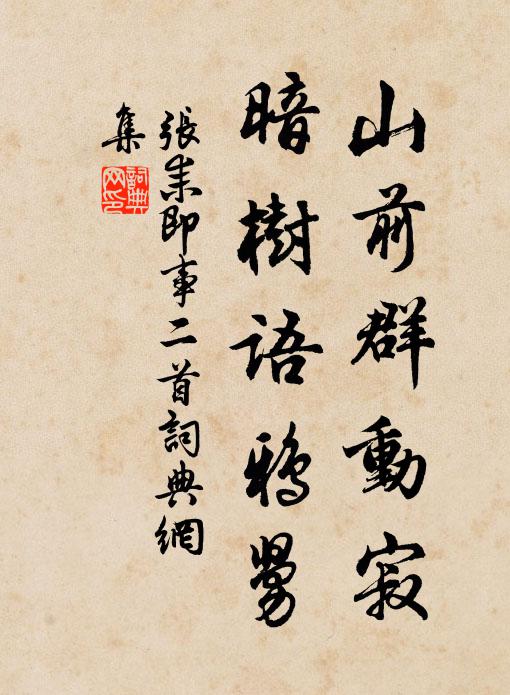 山前群動寂
暗樹語鴉舅
張耒即事二首詞典網
集
詞典
网印